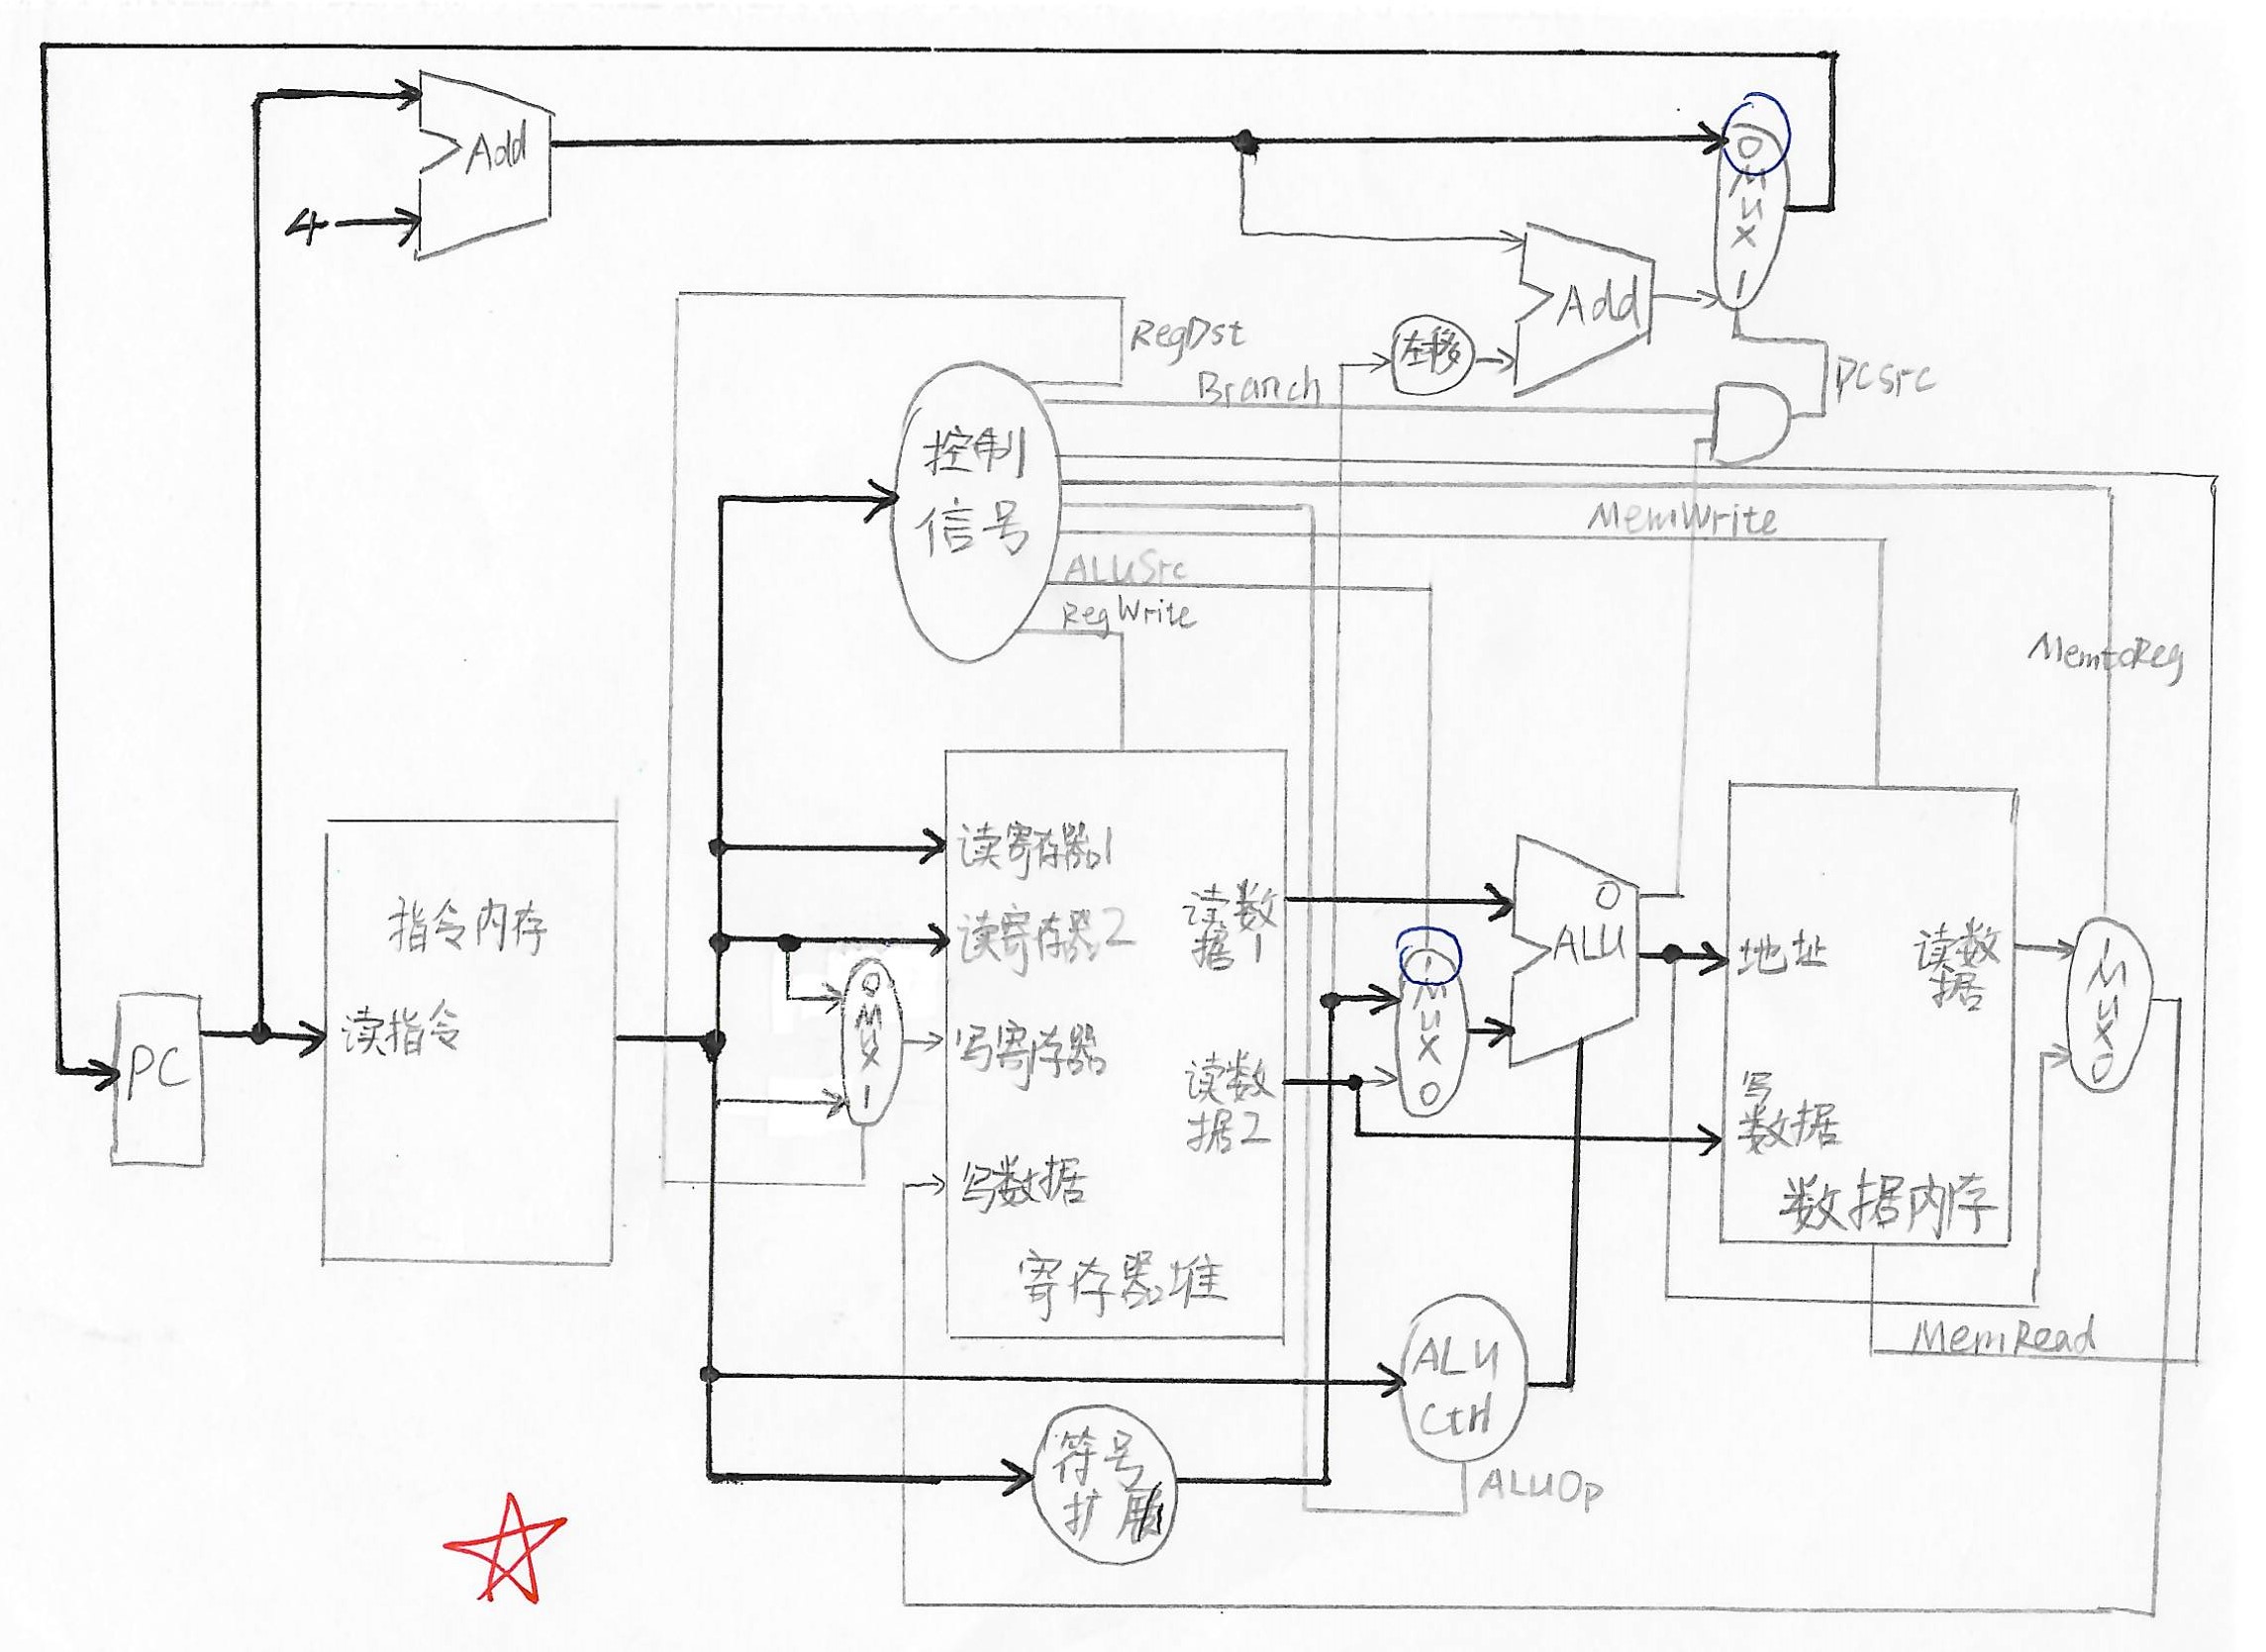 Add
4
0
MUX
1
Add
左移
RegDst
Branch
PCSrc
控制
信号
MemWrite
ALUSrc
RegWrite
MemtoReg
指令内存
读指令
PC
读寄存器1
读寄存器2
0
MUX
1
写寄存器
写数据
寄存器堆
读数
据1
读数
据2
1
MUX
0
0
ALU
地址
读数
据
写
数据
数据内存
1
MUX
0
MemRead
ALU
Ctrl
ALUOp
符号
扩展